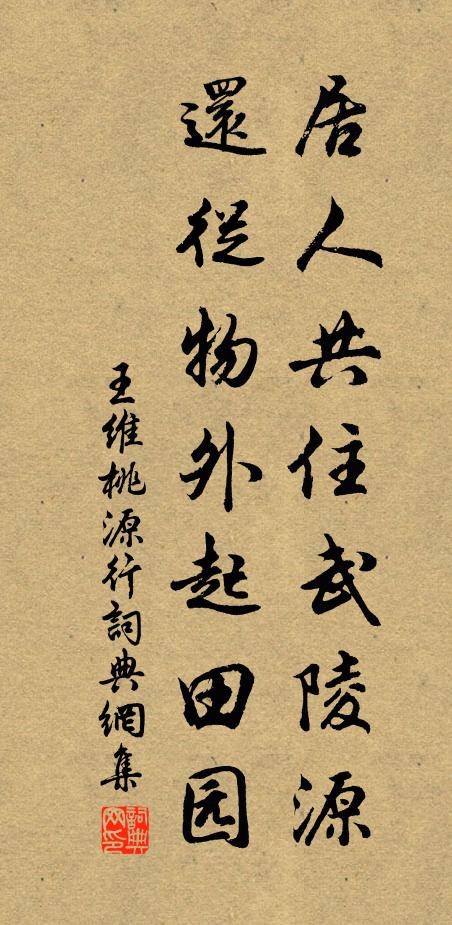 居人共住武陵源
還從物外起田园
王維桃源行詞典網集
詞典网印